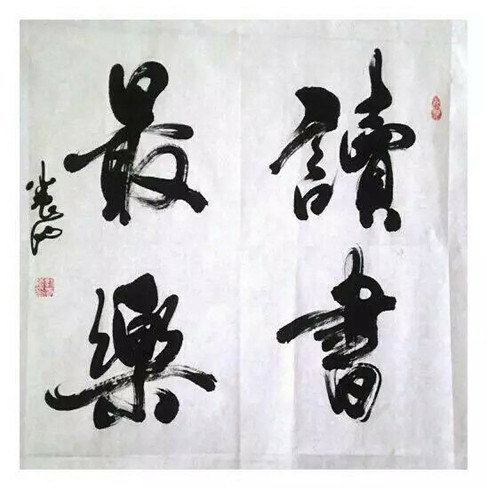 讀書
最樂